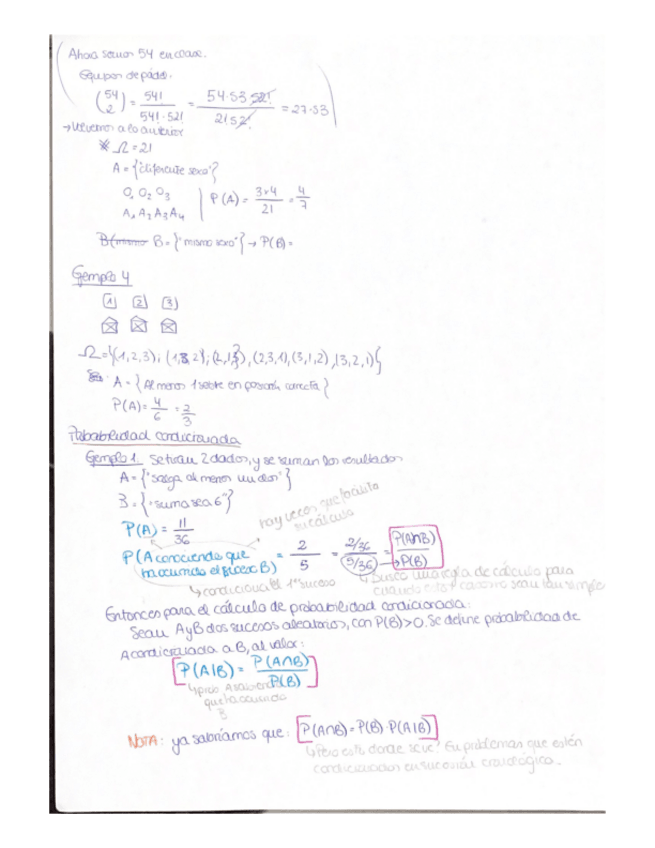 Ahora somos 54 en clase.
Equipos de pádel.
(54 2) = 54! / 54!·52! = 54·53·52! / 2!52! = 27·53
→ Volvemos a lo anterior
* Ω = 21
A = {"diferente sexo"}
O₁ O₂ O₃
A₁ A₂ A₃ A₄
P(A) = 3×4 / 21 = 4/7
B(mismo B = {"mismo sexo"} → P(B) =
Ejemplo 4
1 2 3
Ω = {(1,2,3); (1,3,2); (2,1,3), (2,3,1), (3,1,2), (3,2,1)}
A = {Al menos 1 sobre en posición correcta}
P(A) = 4/6 = 2/3
Probabilidad condicionada
Ejemplo 1. Se tiran 2 dados, y se suman los resultados
A = {"salga al menos un dos"}
B = {"suma sea 6"}
P(A) = 11/36
hay veces que facilita
su cálculo
P(A conociendo que ha ocurrido el suceso B) = 2/5 = 2/36 / 5/36 → = P(A∩B) / P(B)
↳ condiciona el 1º suceso
↳ Busco una regla de cálculo para
cuando estos casos no sean tan simples
Entonces para el cálculo de probabilidad condicionada:
Sean A y B dos sucesos aleatorios, con P(B)>0. Se define probabilidad de
A condicionada a B, al valor:
P(A|B) = P(A∩B) / P(B)
↳ prob A sabiendo
que ha ocurrido
B
NOTA: ya sabríamos que: P(A∩B) = P(B)·P(A|B)
↳ Pero esto donde sirve? En problemas que estén
condicionados en sucesión cronológica.